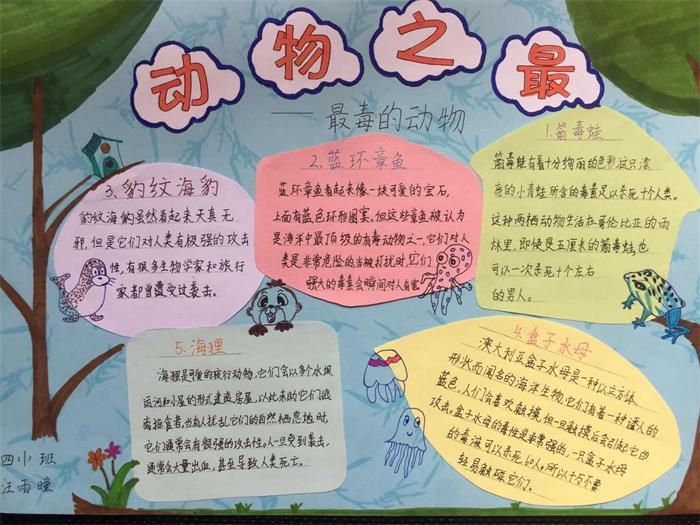 动物之最
——最毒的动物
1.箭毒蛙
箭毒蛙有着十分绚丽的色彩,这只漂
亮的小青蛙所含的毒素足以杀死十个人类。
这种两栖动物生活在哥伦比亚的雨
林里,即使是五厘米的箭毒蛙,也
可以一次杀死十个左右
的男人。
2.蓝环章鱼
蓝环章鱼看起来像一块可爱的宝石,
上面有蓝色环形图案。但这些章鱼被认为
是海洋中最顶级的有毒动物之一,它们对人
类是非常危险的当被打扰时,它们
强大的毒素会瞬间对人有害
3.豹纹海豹
豹纹海豹虽然看起来天真无
邪,但是它们对人类有极强的攻击
性,有很多生物学家和旅行
家都曾遭受过袭击。
4.盒子水母
澳大利亚盒子水母是一种以立方体
形状而闻名的海洋生物,它们有着一种迷人的
蓝色,人们会喜欢触摸,但一旦触摸后会引起它的
攻击。盒子水母的毒性是非常强的,一只盒子水母
的毒液可以杀死60人。所以千万不要
轻易触碰它们。
5.海狸
海狸是可爱的夜行动物,它们会以多个水坝
运河和小屋的形式建造房屋,以此来助它们逃
离掠食者,当有人扰乱它们的自然栖息地时,
它们通常会有很强的攻击性。人一旦受到袭击,
通常会大量出血,甚至导致人类死亡。
四小班
汪雨瞳